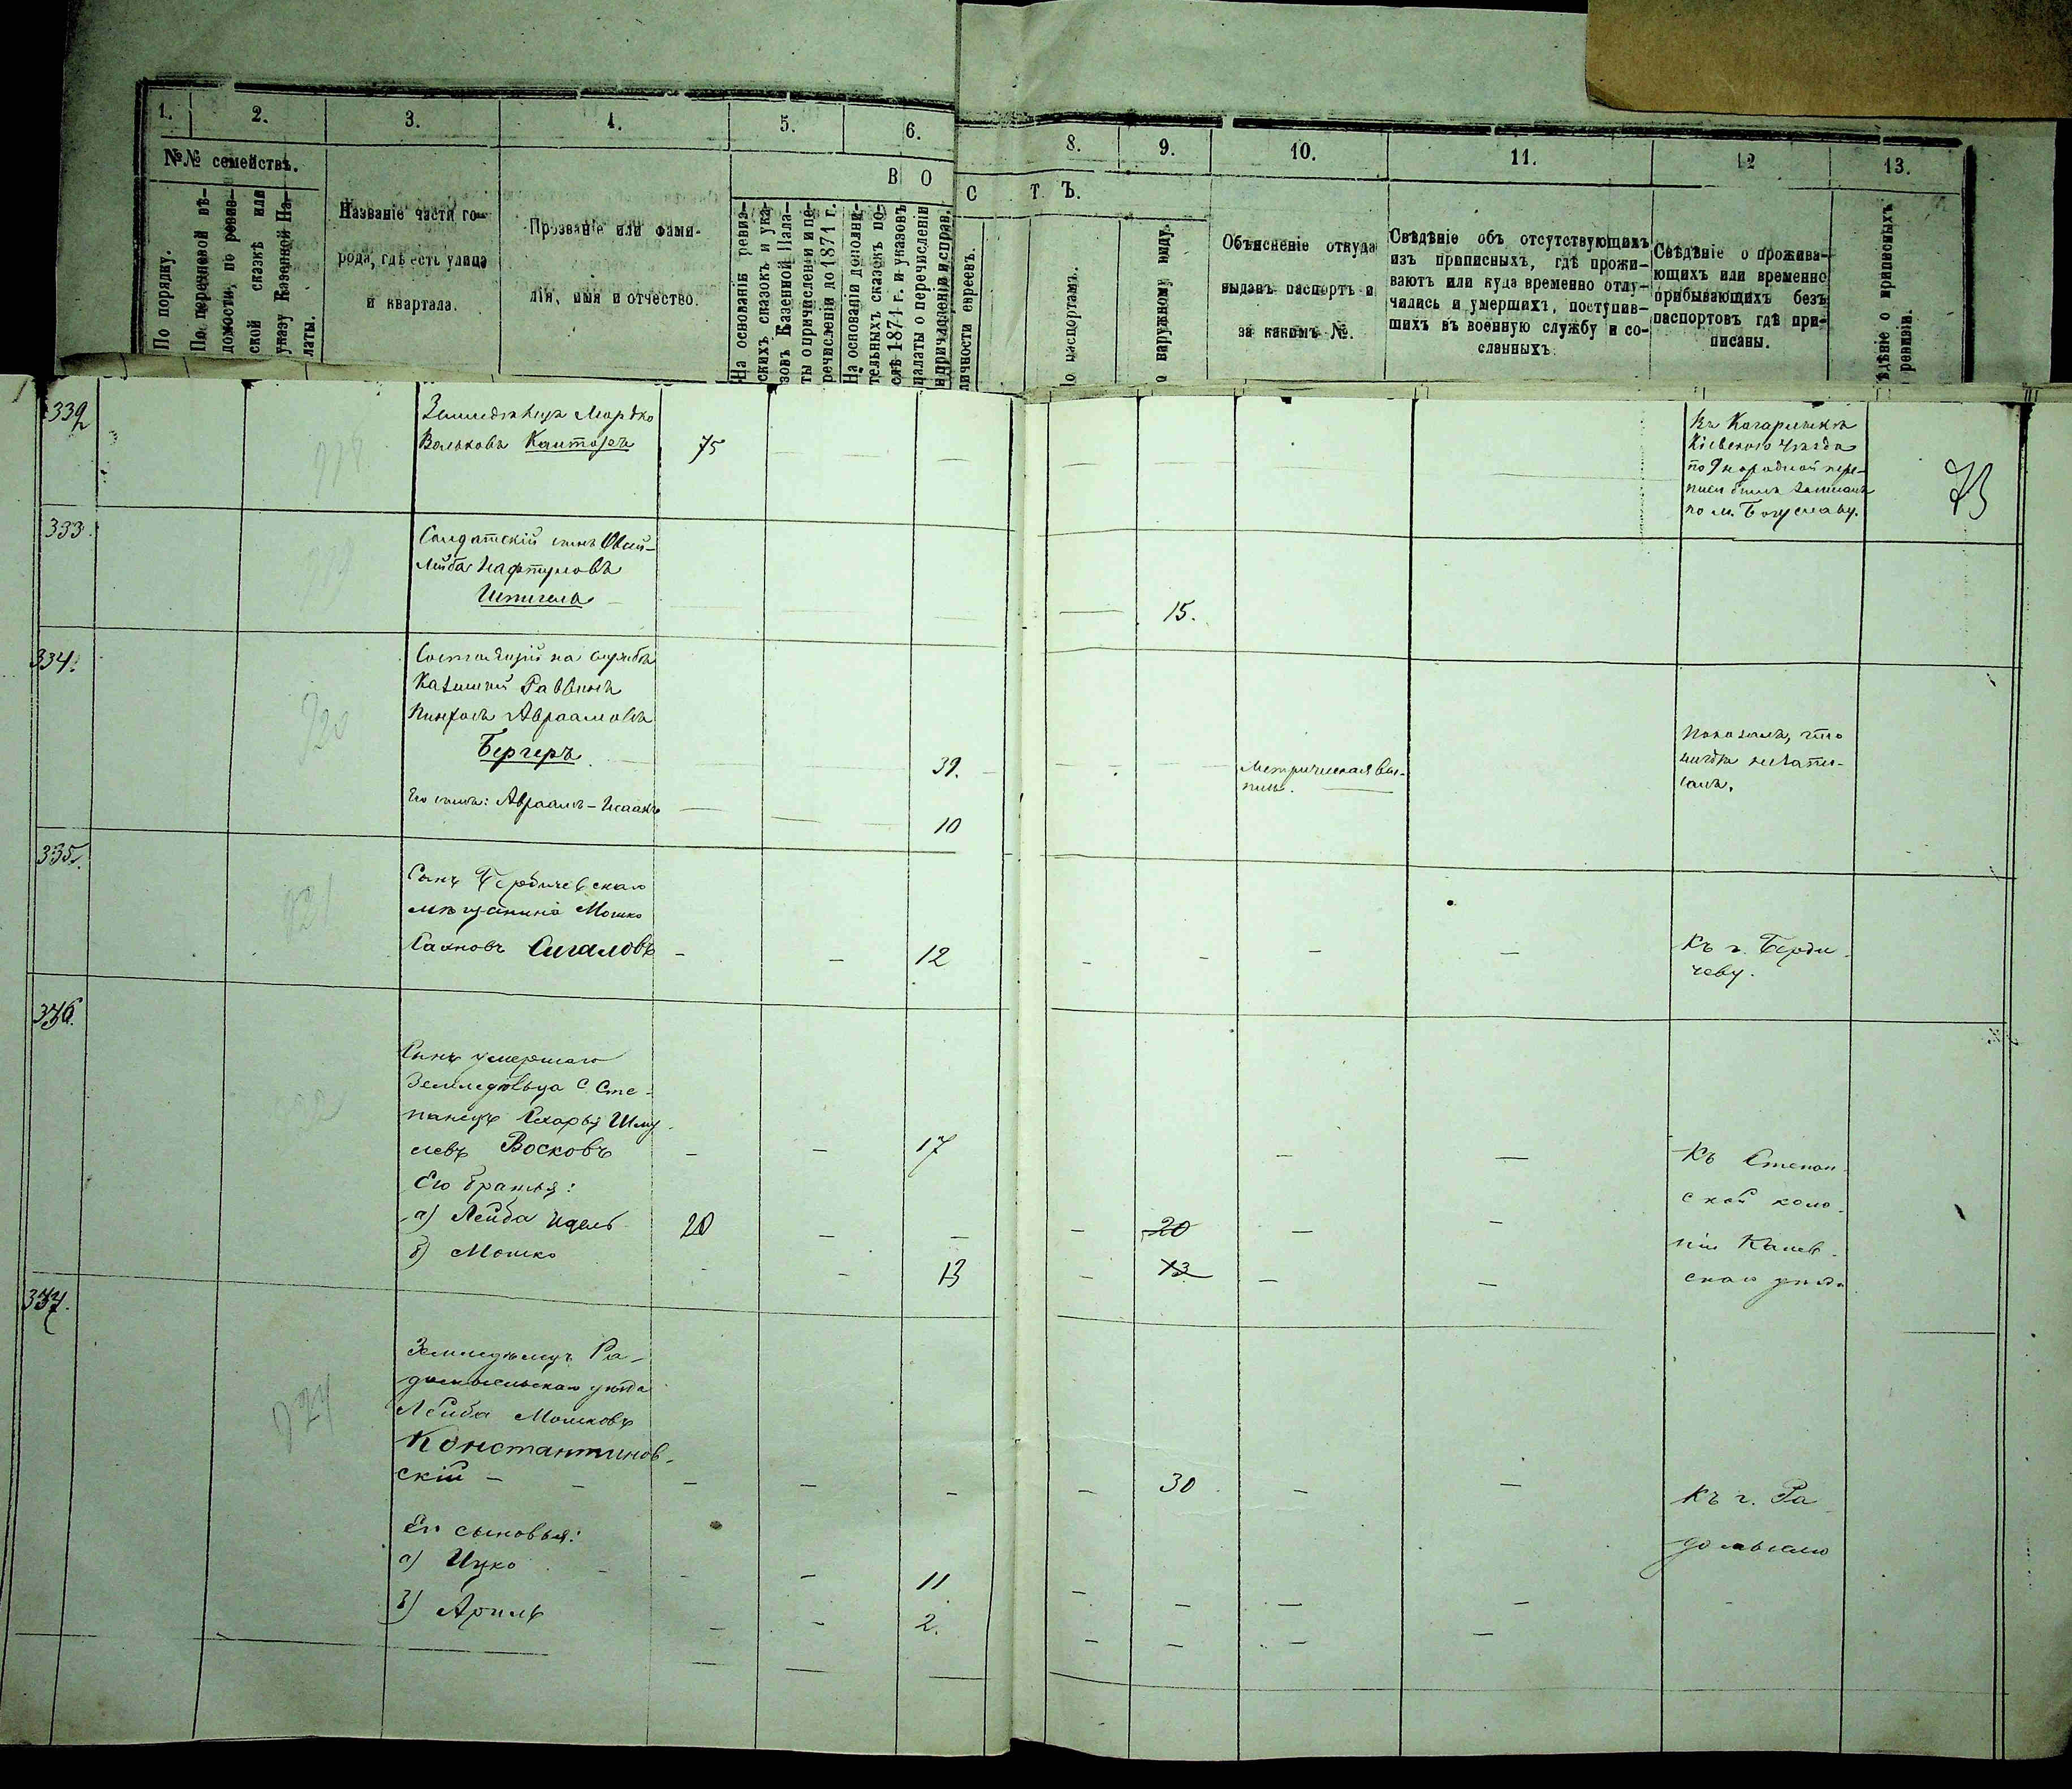 1. 2. 3. 4. 5. 6. 8. 9. 10. 11. 12 13.
№№ семействъ.
В О С Т Ъ.
По порядку.
По перечневой вѣ-
домости, по ревиз-
ской сказкѣ или
указу Казенной Па-
латы.
Названіе части го-
рода, гдѣ есть улица
и квартала.
Прозваніе или фами-
лія, имя и отчество.
На основаніи ревиз-
скихъ сказокъ и ука-
зовъ Казенной Пала-
ты о причисленіи и пе-
речисленіи до 1871 г.
На основаніи дополни-
тельныхъ сказокъ по-
слѣ 1871 г. и указовъ
палаты о перечисленіи
и причисленіи и справ.
личности евреевъ.
о паспортамъ.
о наружному виду.
Объясненіе откуда
выданъ паспортъ и
за какимъ №.
Свѣдѣніе объ отсутствующихъ
изъ приписныхъ, гдѣ прожи-
ваютъ или куда временно отлу-
чились и умершихъ, поступив-
шихъ въ военную службу и со-
сланныхъ.
Свѣдѣніе о прожива-
ющихъ или временно
прибывающихъ безъ
паспортовъ гдѣ при-
писаны.
ѣдѣніе о приписныхъ
ревизіи.
332
Земледѣлецъ Мордко
Вольковъ Канторъ
75
Къ Кагарлыкѣ
Кіевского Уѣзда
по 9 народной пере-
писи былъ записанъ
по м. Богуславу.
73
333.
Солдатскій сынъ
Лейба Нафтуловъ
Шпигель
15.
334.
Состоящій на службѣ
Казенный Раввинъ
Пинхосъ Авраамовъ
Бергеръ
39.
Метрическая вы-
пись.
Показалъ, что
нигдѣ не запи-
санъ.
Его сынъ: Авраамъ-Исаакъ
10
335.
Сынъ Бердичевскаго
мѣщанина Мошко
Сахновъ Сигаловъ
12
Къ г. Берди-
чеву.
336.
Сынъ умершаго
Земледѣльца с Сте-
панецъ Шму-
левъ Восковъ
17
Его братья:
а) Лейба Идель
20 20
б) Мошко
13 13
Къ Степан-
ской коло-
ніи Канев-
скаго уѣзда
337.
Земледѣлецъ Ра-
домысльскаго уѣзда
Лейба Мошковъ
Константинов-
скій
30
Къ г. Ра
домыслю
Его сыновья:
а) Ицко
11
б) Арпиль
2.